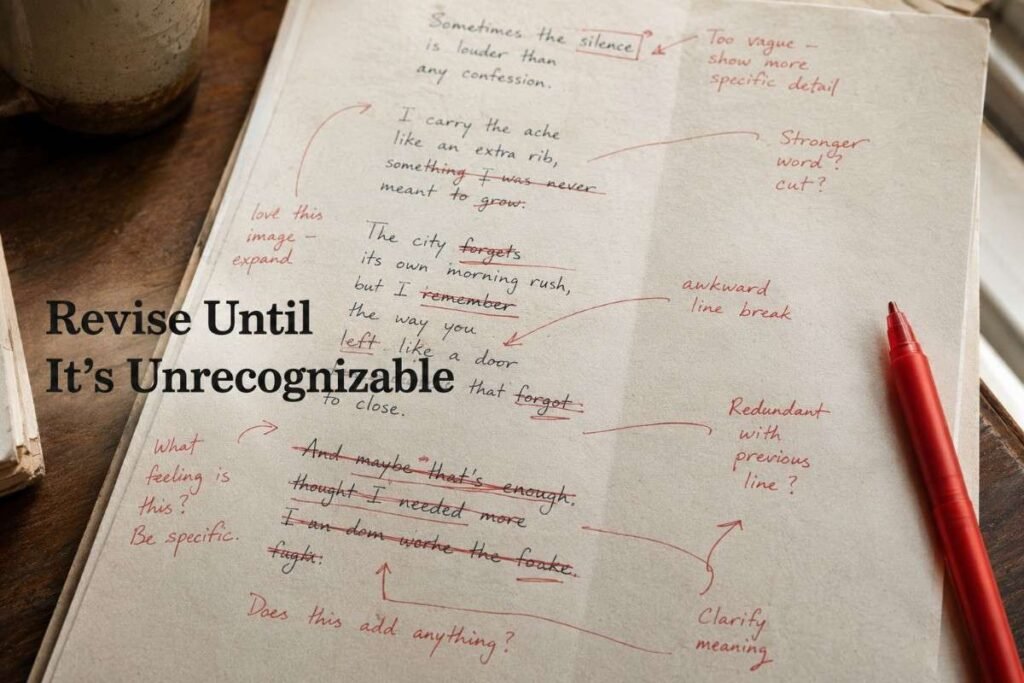 Sometimes the silence
is louder than
any confession.
Too vague –
show more
specific detail
I carry the ache
like an extra rib,
something I was never
meant to grow.
Stronger
word?
cut?
love this
image –
expand
The city forgets
its own morning rush,
but I remember
the way you
left like a door
that forgot
to close.
awkward
line break
Revise Until
It's Unrecognizable
Redundant
with
previous
line?
What
feeling is
this?
Be specific.
And maybe that's enough.
thought I needed more
I an dom worhe the foake.
Does this add anything?
Clarify
meaning